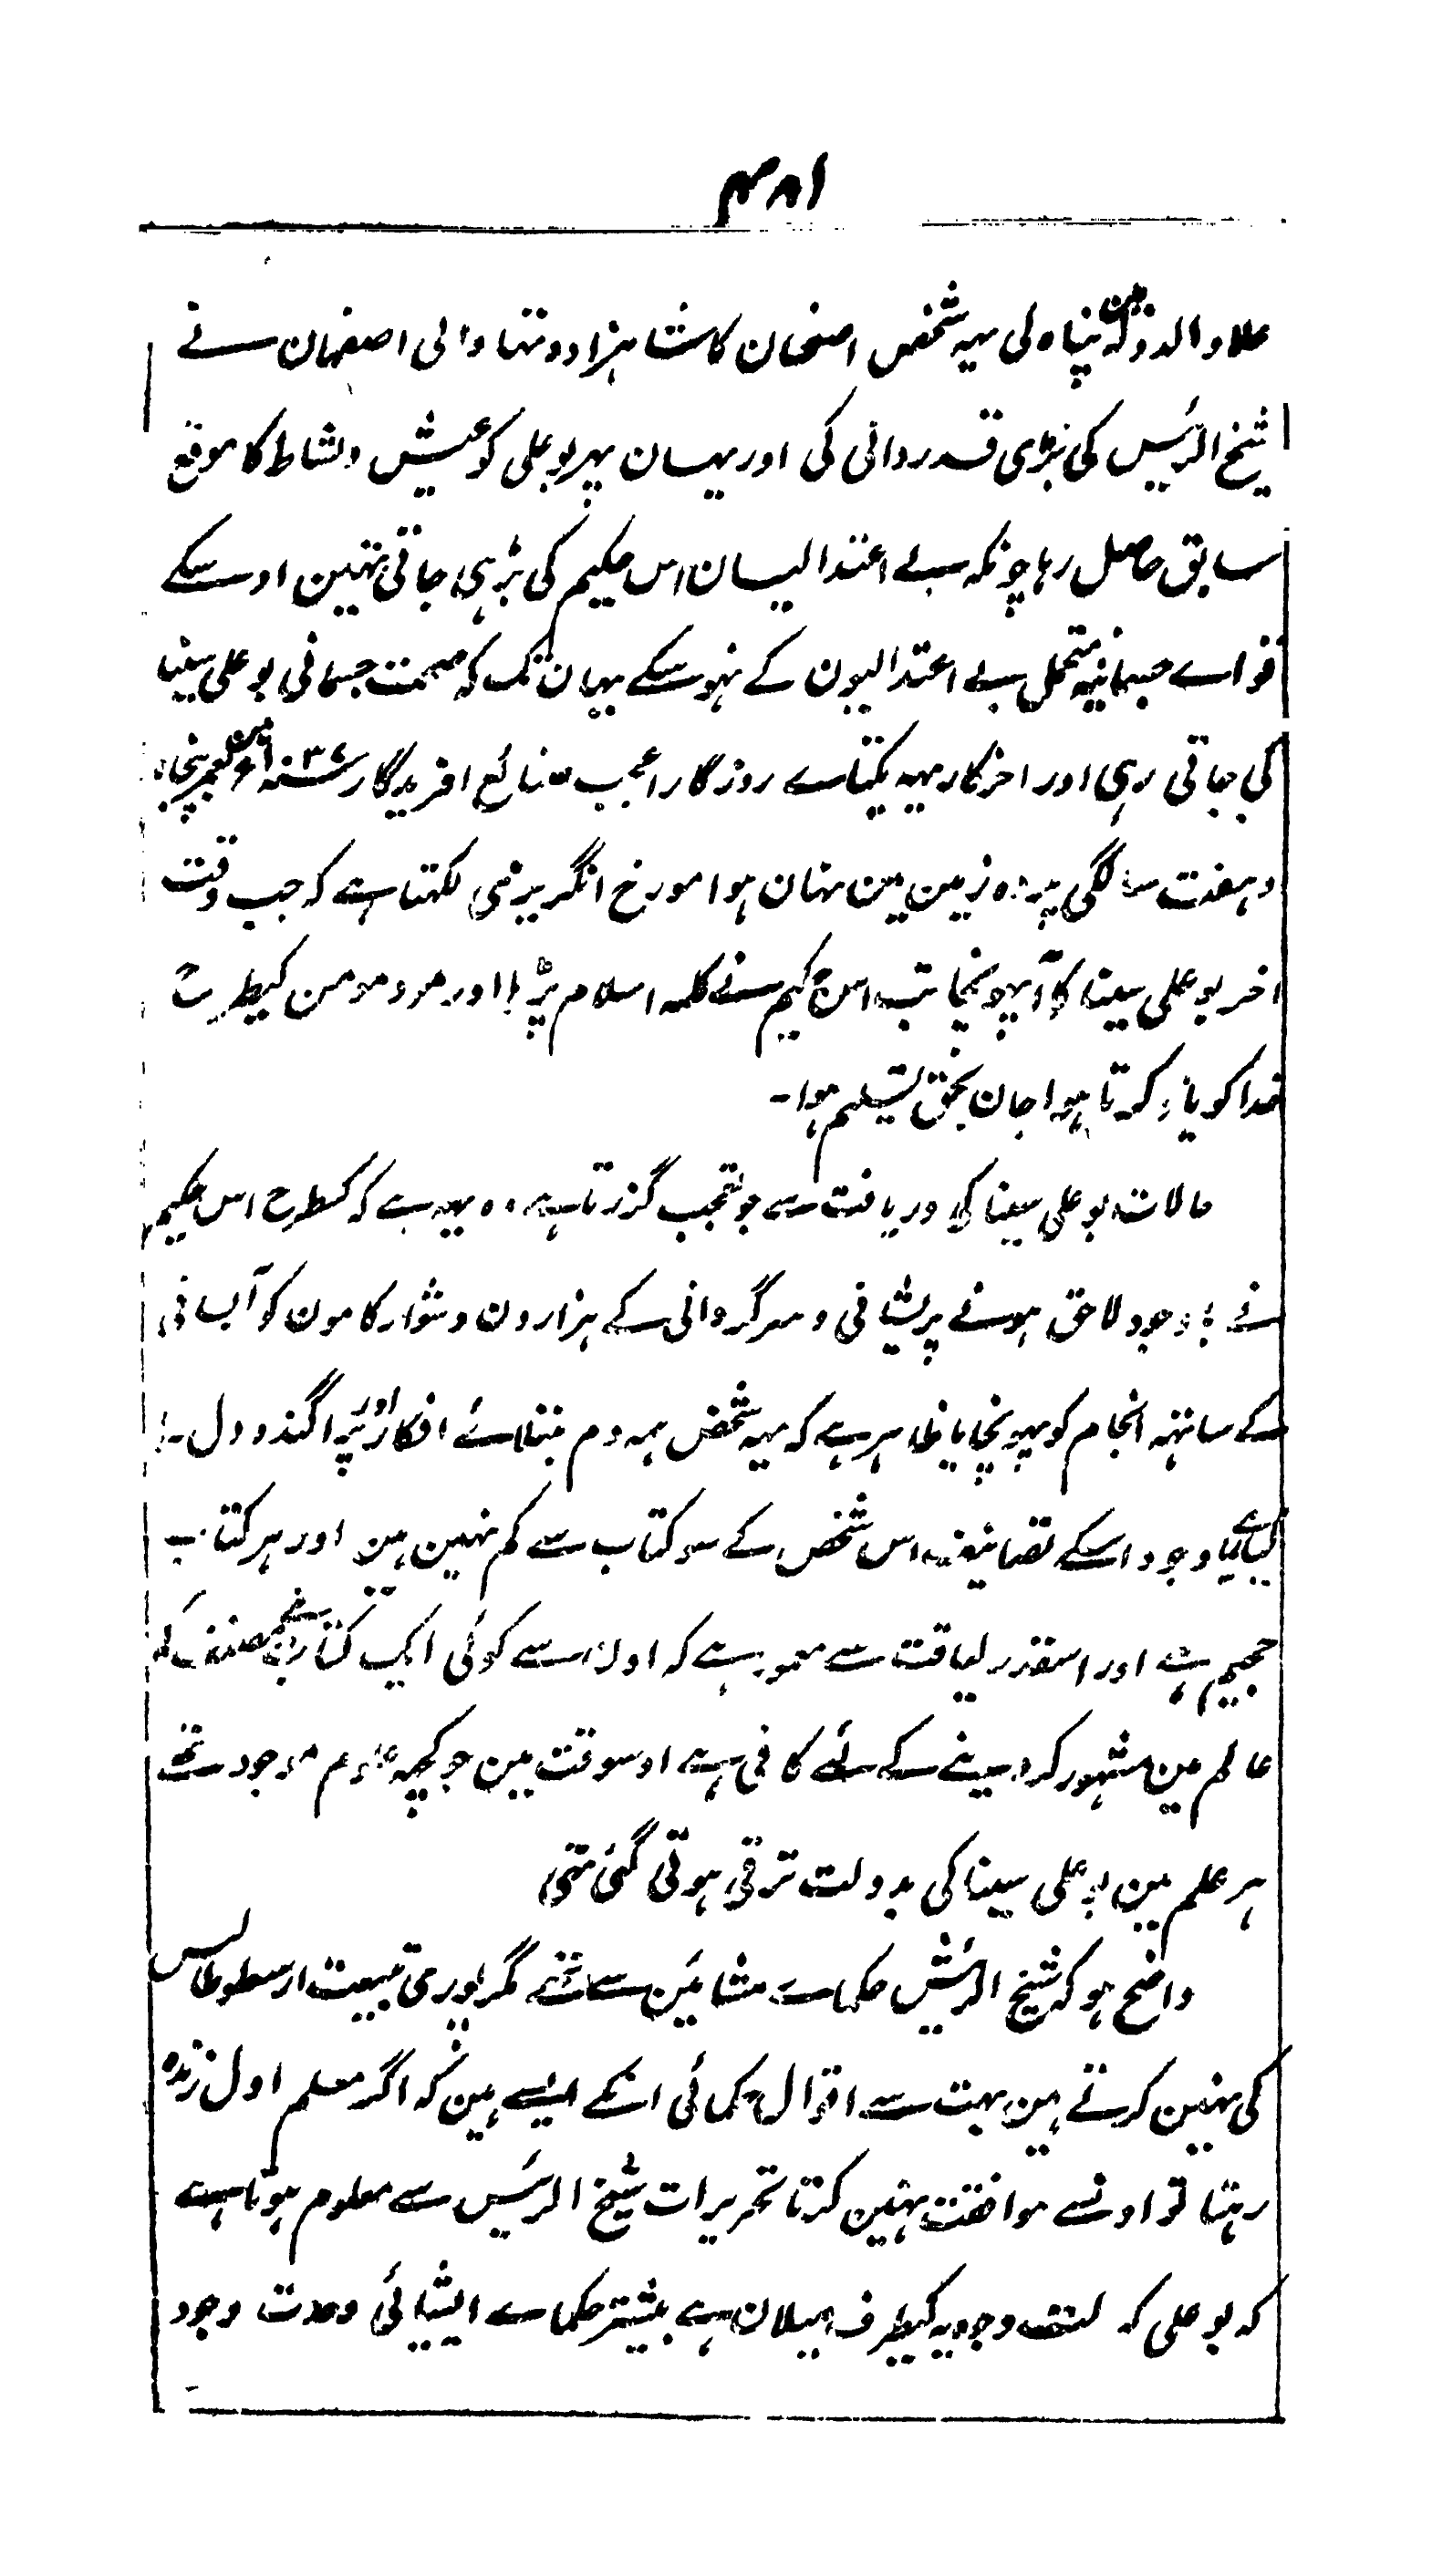 ۴۸۱
علاو الدولہ مین پناہ لی یہہ شخص اصفحان کا شاہزادہ تھا والی اصفہان نے
شیخ الرئیس کی بڑی قدردانی کی اور یہان پہر بو علی کو عیش و نشاط کا موقع
سابق حاصل رہا چونکہ بے اعتدالیان اس حکیم کی بڑہی جاتی تہین اوسکے
قواے جسمانیہ متحمل بے اعتدالیون کے نہوسکے یہان تک کہ صحت جسمانی بو علی سینا
کی جاتی رہی اور اخرکار یہہ یکتاے روزگار اعجب صنائع افریدگار سنہ ۱۰۳۷ء مین بعمر پنجاہ
و ہفت سالگی پردہ زمین مین نہان ہوا مورخ انگریزی لکہتا ہے کہ جب وقت
اخر بو علی سینا کا آپہونچا تب اس حکیم نے کلمہ اسلام پڑہا اور مرد مومن کیطرح
خدا کو یاد کرتا ہوا جان بحق تسلیم ہوا۔
حالات بو علی سینا کی دریافت سے جو تعجب گزرتا ہے وہ یہہ ہے کہ کسطرح اس حکیم
نے باوجود لاحق ہونے پریشانی و سرگردانی کے ہزارون دشوار کامون کو آسانی
کے ساتہہ انجام کو پہونچایا ظاہر ہے کہ یہہ شخص ہمہ دم مبتلائے افکار اور پراگندہ دل رہا
کیا ہے باوجود اسکے تصانیف اس شخص کے سو کتاب سے کم نہین ہین اور ہر کتاب
حجیم ہے اور اسقدر لیاقت سے معمور ہے کہ اون سے کوئی ایک کتاب اپنے مصنف کو
عالم مین مشہور کردینے کے لئے کافی ہے اوسوقت مین جو کچہہ علوم موجود تہے
ہر علم مین بو علی سینا کی بدولت ترقی ہوتی گئی تہی
واضح ہو کہ شیخ الرئیس حکماے مشائین سے تہے مگر پوری تبیعت ارسطوطالیس
کی نہین کرتے ہین بہت سے اقوال حکمائی انکے ایسے ہین کہ اگر معلم اول زندہ
رہتا تو اونسے موافقت نہین کرتا تحریرات شیخ الرئیس سے معلوم ہوتا ہے
کہ بو علی کہ وجودیہ کیطرف میلان ہے بیشتر حکماے ایشیائی وحدت وجود